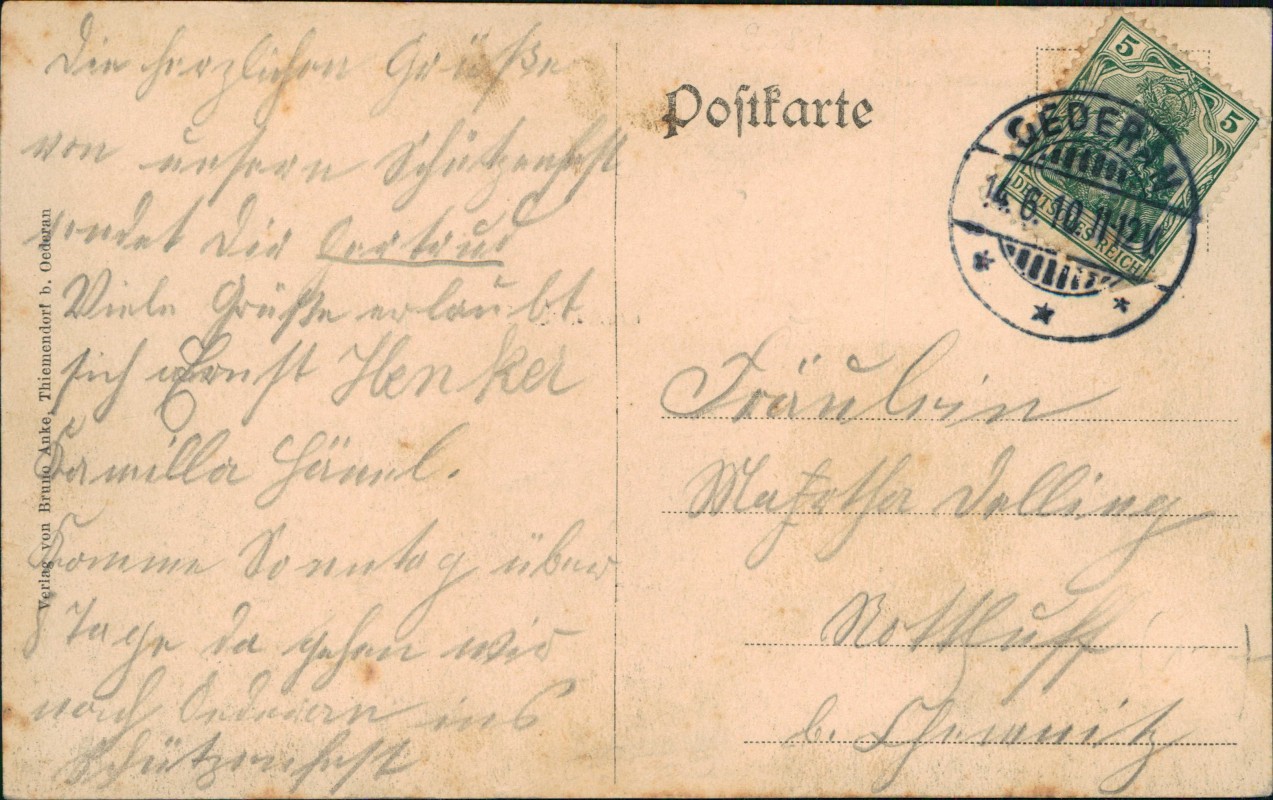 Die herzlichen Grüße
von unsern Schützenfest
sendet Dir
Viele Grüße erlaubt
sich Ernst Henker
Camilla Hänel.
Komme Sonntag über
8 Tage da gehen wir
nach Oederan ins
Schützenfest
Verlag von Bruno Anke, Thiemendorf b. Oederan
Postkarte
5 5
DEUTSCHES REICH
OEDERAN
14.6.10.11-12V.
Fräulein
Martha Delling
Rottluff
b. Chemnitz